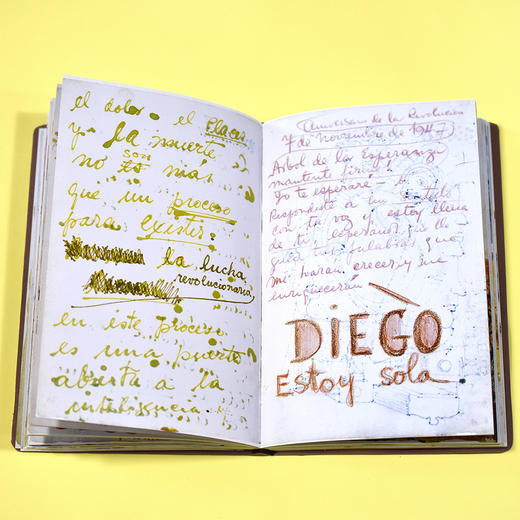 el dolor. el placer
y la muerte
no son más
que un proceso
para existir
la lucha
revolucionaria
en este proceso
es una puerta
abierta a la
inteligencia
(Aniversario de la Revolución
7 de noviembre de 1947)
Arbol de la Esperanza
mantente firme
Yo te esperaré - b
Respondiste a un sentido
con tu voz y estoy llena
de ti, esperando que
tus palabras que
me harán crecer y me
enriquecerán
DIEGO
Estoy sola